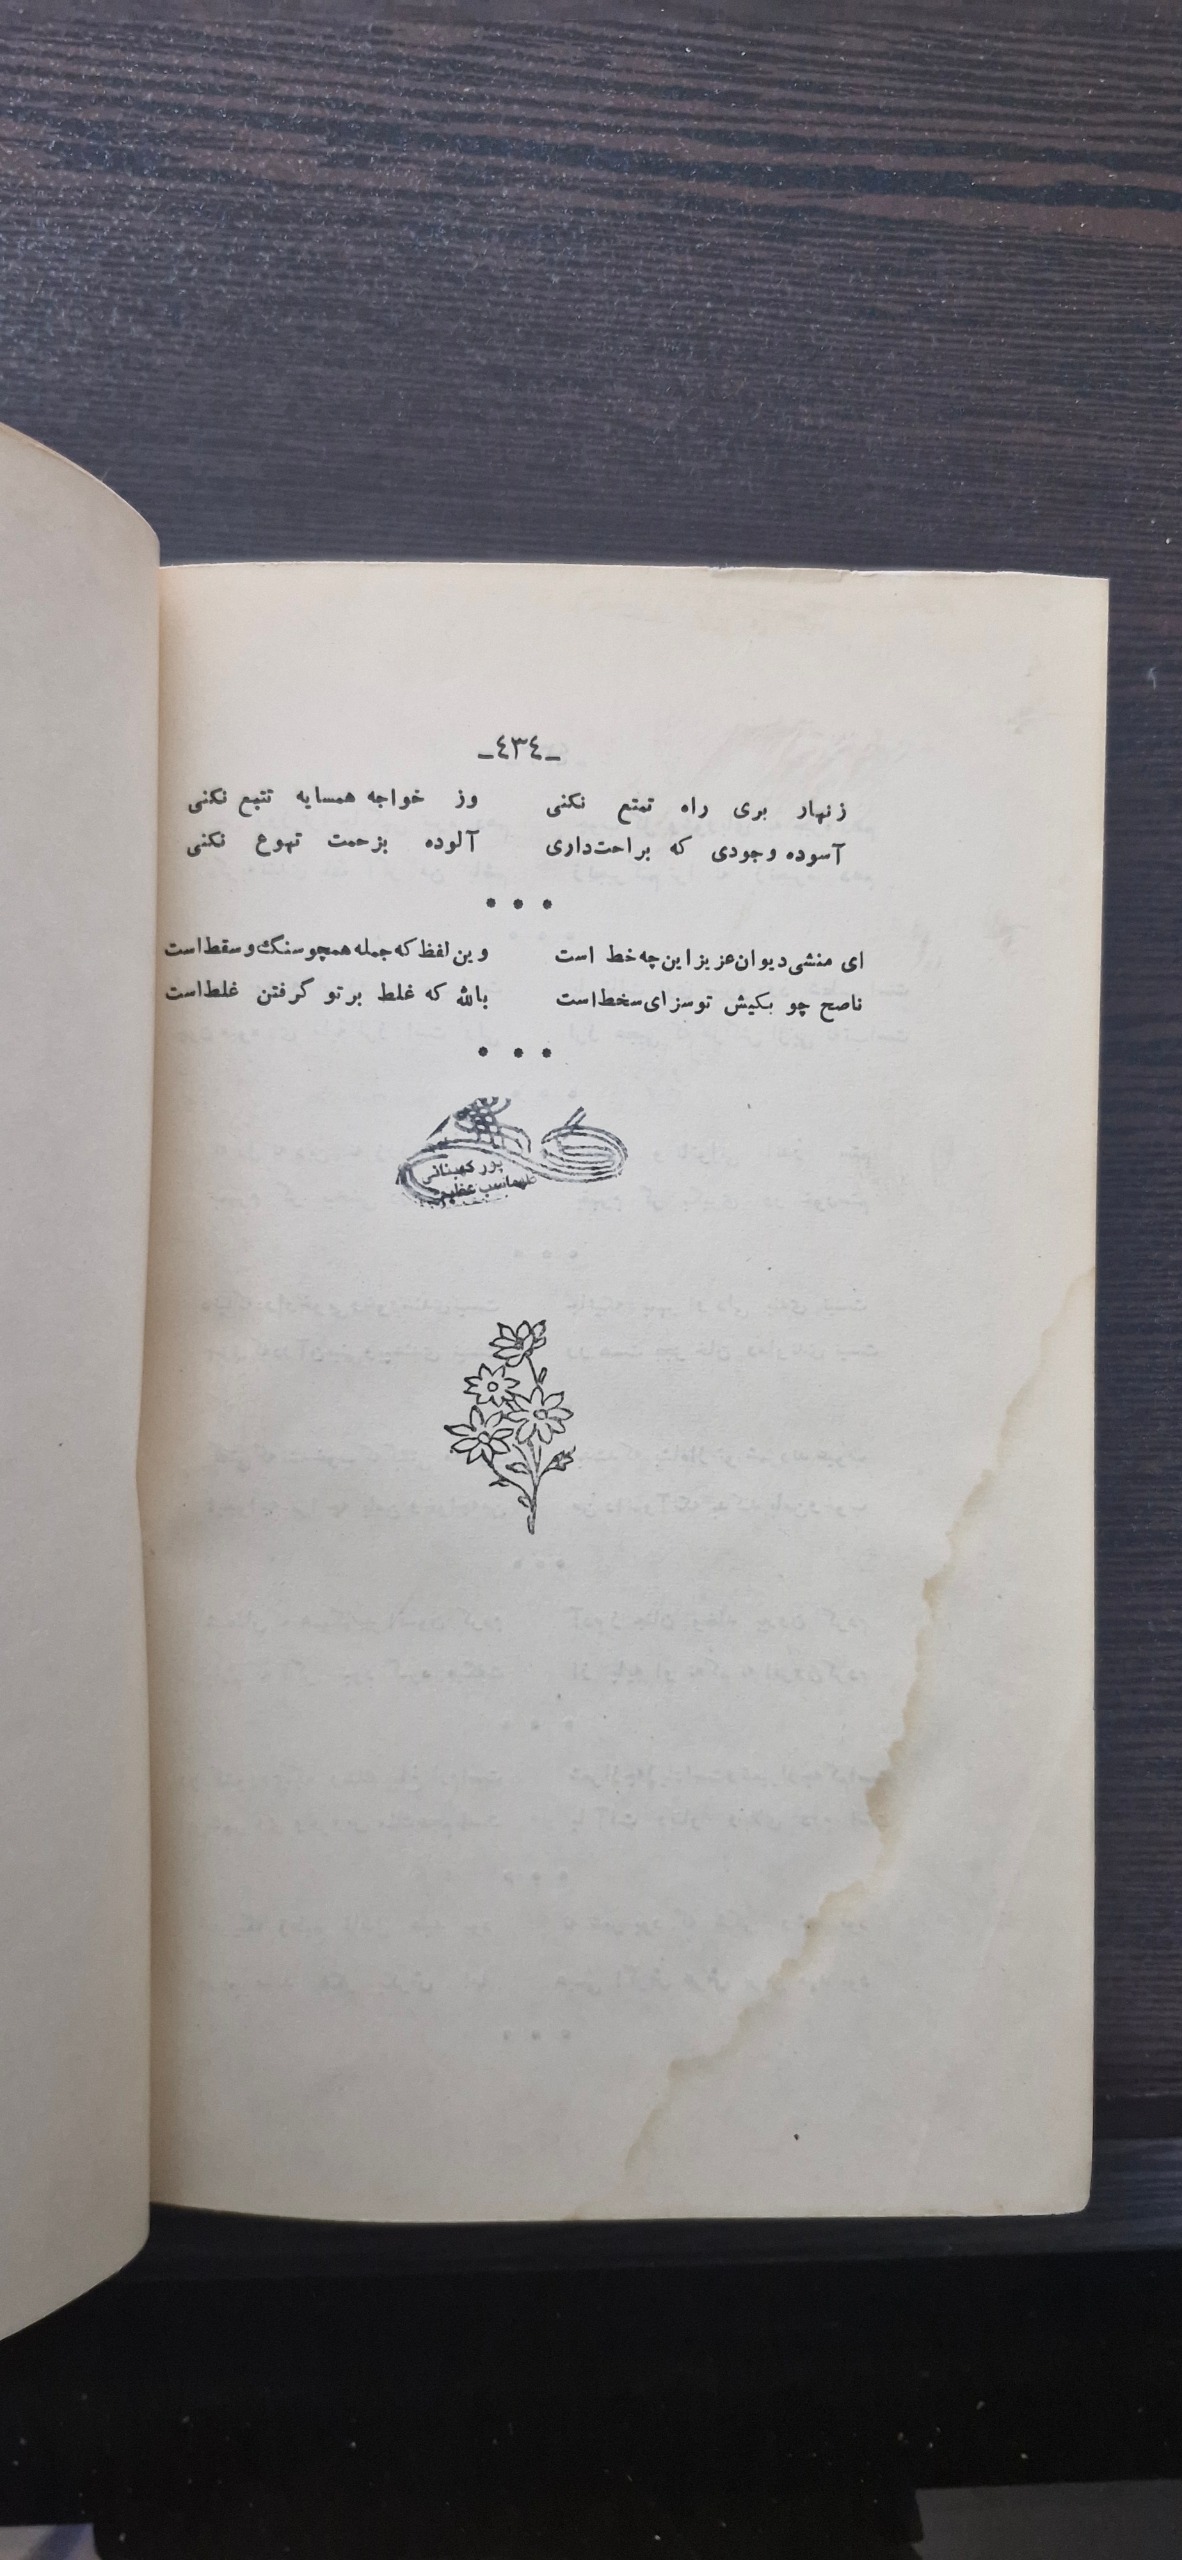 -٤٣٤-
زنهار بری راه تمتع نکنی وز خواجه همسایه تتبع نکنی
آسوده وجودی که براحت‌داری آلوده بزحمت تهوع نکنی
* * *
ای منشی دیوان عزیز این چه خط است وین لفظ که جمله همچو سنگ و سقط است
ناصح چو بکیش تو سزای سخط است بالله که غلط بر تو گرفتن غلط است
* * *
پور کهبنانی
طهماسب عظیم